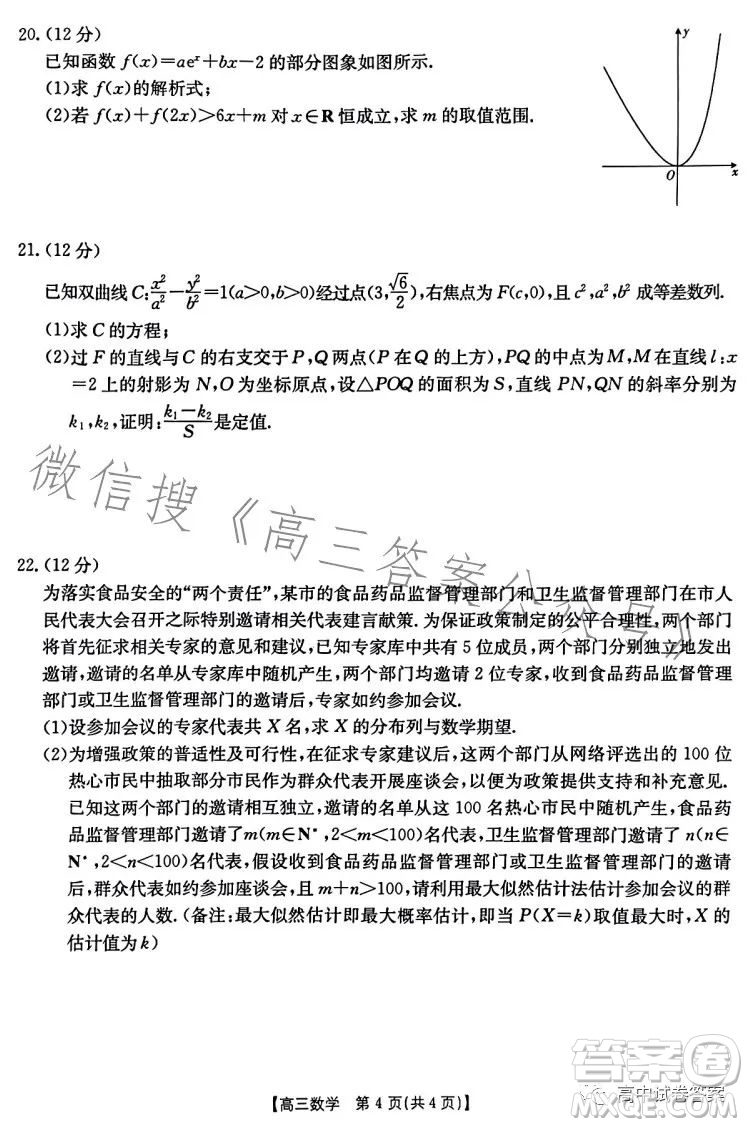 20.(12分)
已知函数 f(x)=aeˣ+bx−2的部分图象如图所示.
(1)求 f(x)的解析式;
(2)若 f(x)+f(2x)>6x+m 对 x∈R 恒成立,求 m 的取值范围.
y
O
x
21.(12分)
已知双曲线 C:x²/a²−y²/b²=1(a>0,b>0)经过点(3,√6/2),右焦点为 F(c,0),且 c²,a²,b² 成等差数列.
(1)求 C 的方程;
(2)过 F 的直线与 C 的右支交于 P,Q 两点(P 在 Q 的上方),PQ 的中点为 M,M 在直线 l:x
=2 上的射影为 N,O 为坐标原点,设△POQ 的面积为 S,直线 PN,QN 的斜率分别为
k₁,k₂,证明:(k₁−k₂)/S是定值.
微信搜《高三答案公众号》
22.(12分)
为落实食品安全的“两个责任”,某市的食品药品监督管理部门和卫生监督管理部门在市人
民代表大会召开之际特别邀请相关代表建言献策.为保证政策制定的公平合理性,两个部门
将首先征求相关专家的意见和建议,已知专家库中共有 5 位成员,两个部门分别独立地发出
邀请,邀请的名单从专家库中随机产生,两个部门均邀请 2 位专家,收到食品药品监督管理
部门或卫生监督管理部门的邀请后,专家如约参加会议.
(1)设参加会议的专家代表共 X 名,求 X 的分布列与数学期望.
(2)为增强政策的普适性及可行性,在征求专家建议后,这两个部门从网络评选出的 100 位
热心市民中抽取部分市民作为群众代表开展座谈会,以便为政策提供支持和补充意见.
已知这两个部门的邀请相互独立,邀请的名单从这 100 名热心市民中随机产生,食品药
品监督管理部门邀请了 m(m∈N*,2<m<100)名代表,卫生监督管理部门邀请了 n(n∈
N*,2<n<100)名代表,假设收到食品药品监督管理部门或卫生监督管理部门的邀请
后,群众代表如约参加座谈会,且 m+n>100,请利用最大似然估计法估计参加会议的群
众代表的人数.(备注:最大似然估计即最大概率估计,即当 P(X=k)取值最大时,X 的
估计值为 k)
【高三数学 第 4 页(共 4 页)】
高中试卷答案
答案圈
MXQE.COM